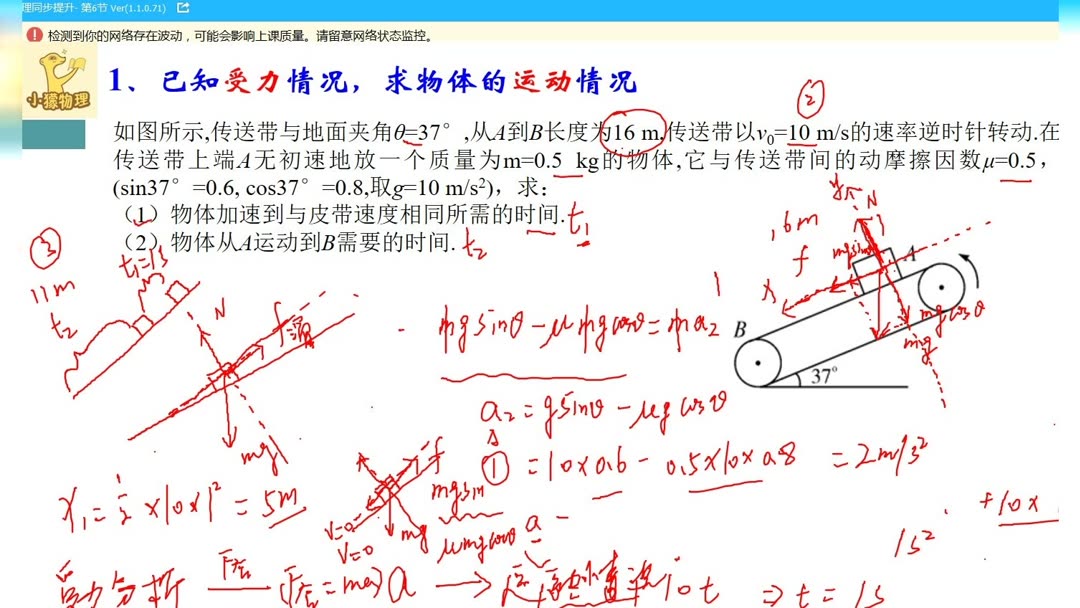 理同步提升- 第6节 Ver(1.1.0.71)
检测到你的网络存在波动，可能会影响上课质量。请留意网络状态监控。
小猿物理
1、已知受力情况，求物体的运动情况
如图所示,传送带与地面夹角θ=37°,从A到B长度为16 m,传送带以v₀=10 m/s的速率逆时针转动.在
传送带上端A无初速地放一个质量为m=0.5 kg的物体,它与传送带间的动摩擦因数μ=0.5,
(sin37°=0.6, cos37°=0.8,取g=10 m/s²)，求：
（1）物体加速到与皮带速度相同所需的时间. t₁
（2）物体从A运动到B需要的时间. t₂
②
③
t₁=1s
11m
t₂
N
mg
16m
f
y
N
x
A
B
37°
mgcosθ
mg
mgsinθ-μmgcosθ=ma₂
a₂=gsinθ-μgcosθ
①=10×0.6-0.5×10×0.8=2m/s²
x₁=½×10×1²=5m
f
mgsin
μmgcosθ
mg
v=0
a
+10×
1s²
受力分析 F合 F合=ma a
10t ⇒t=1s